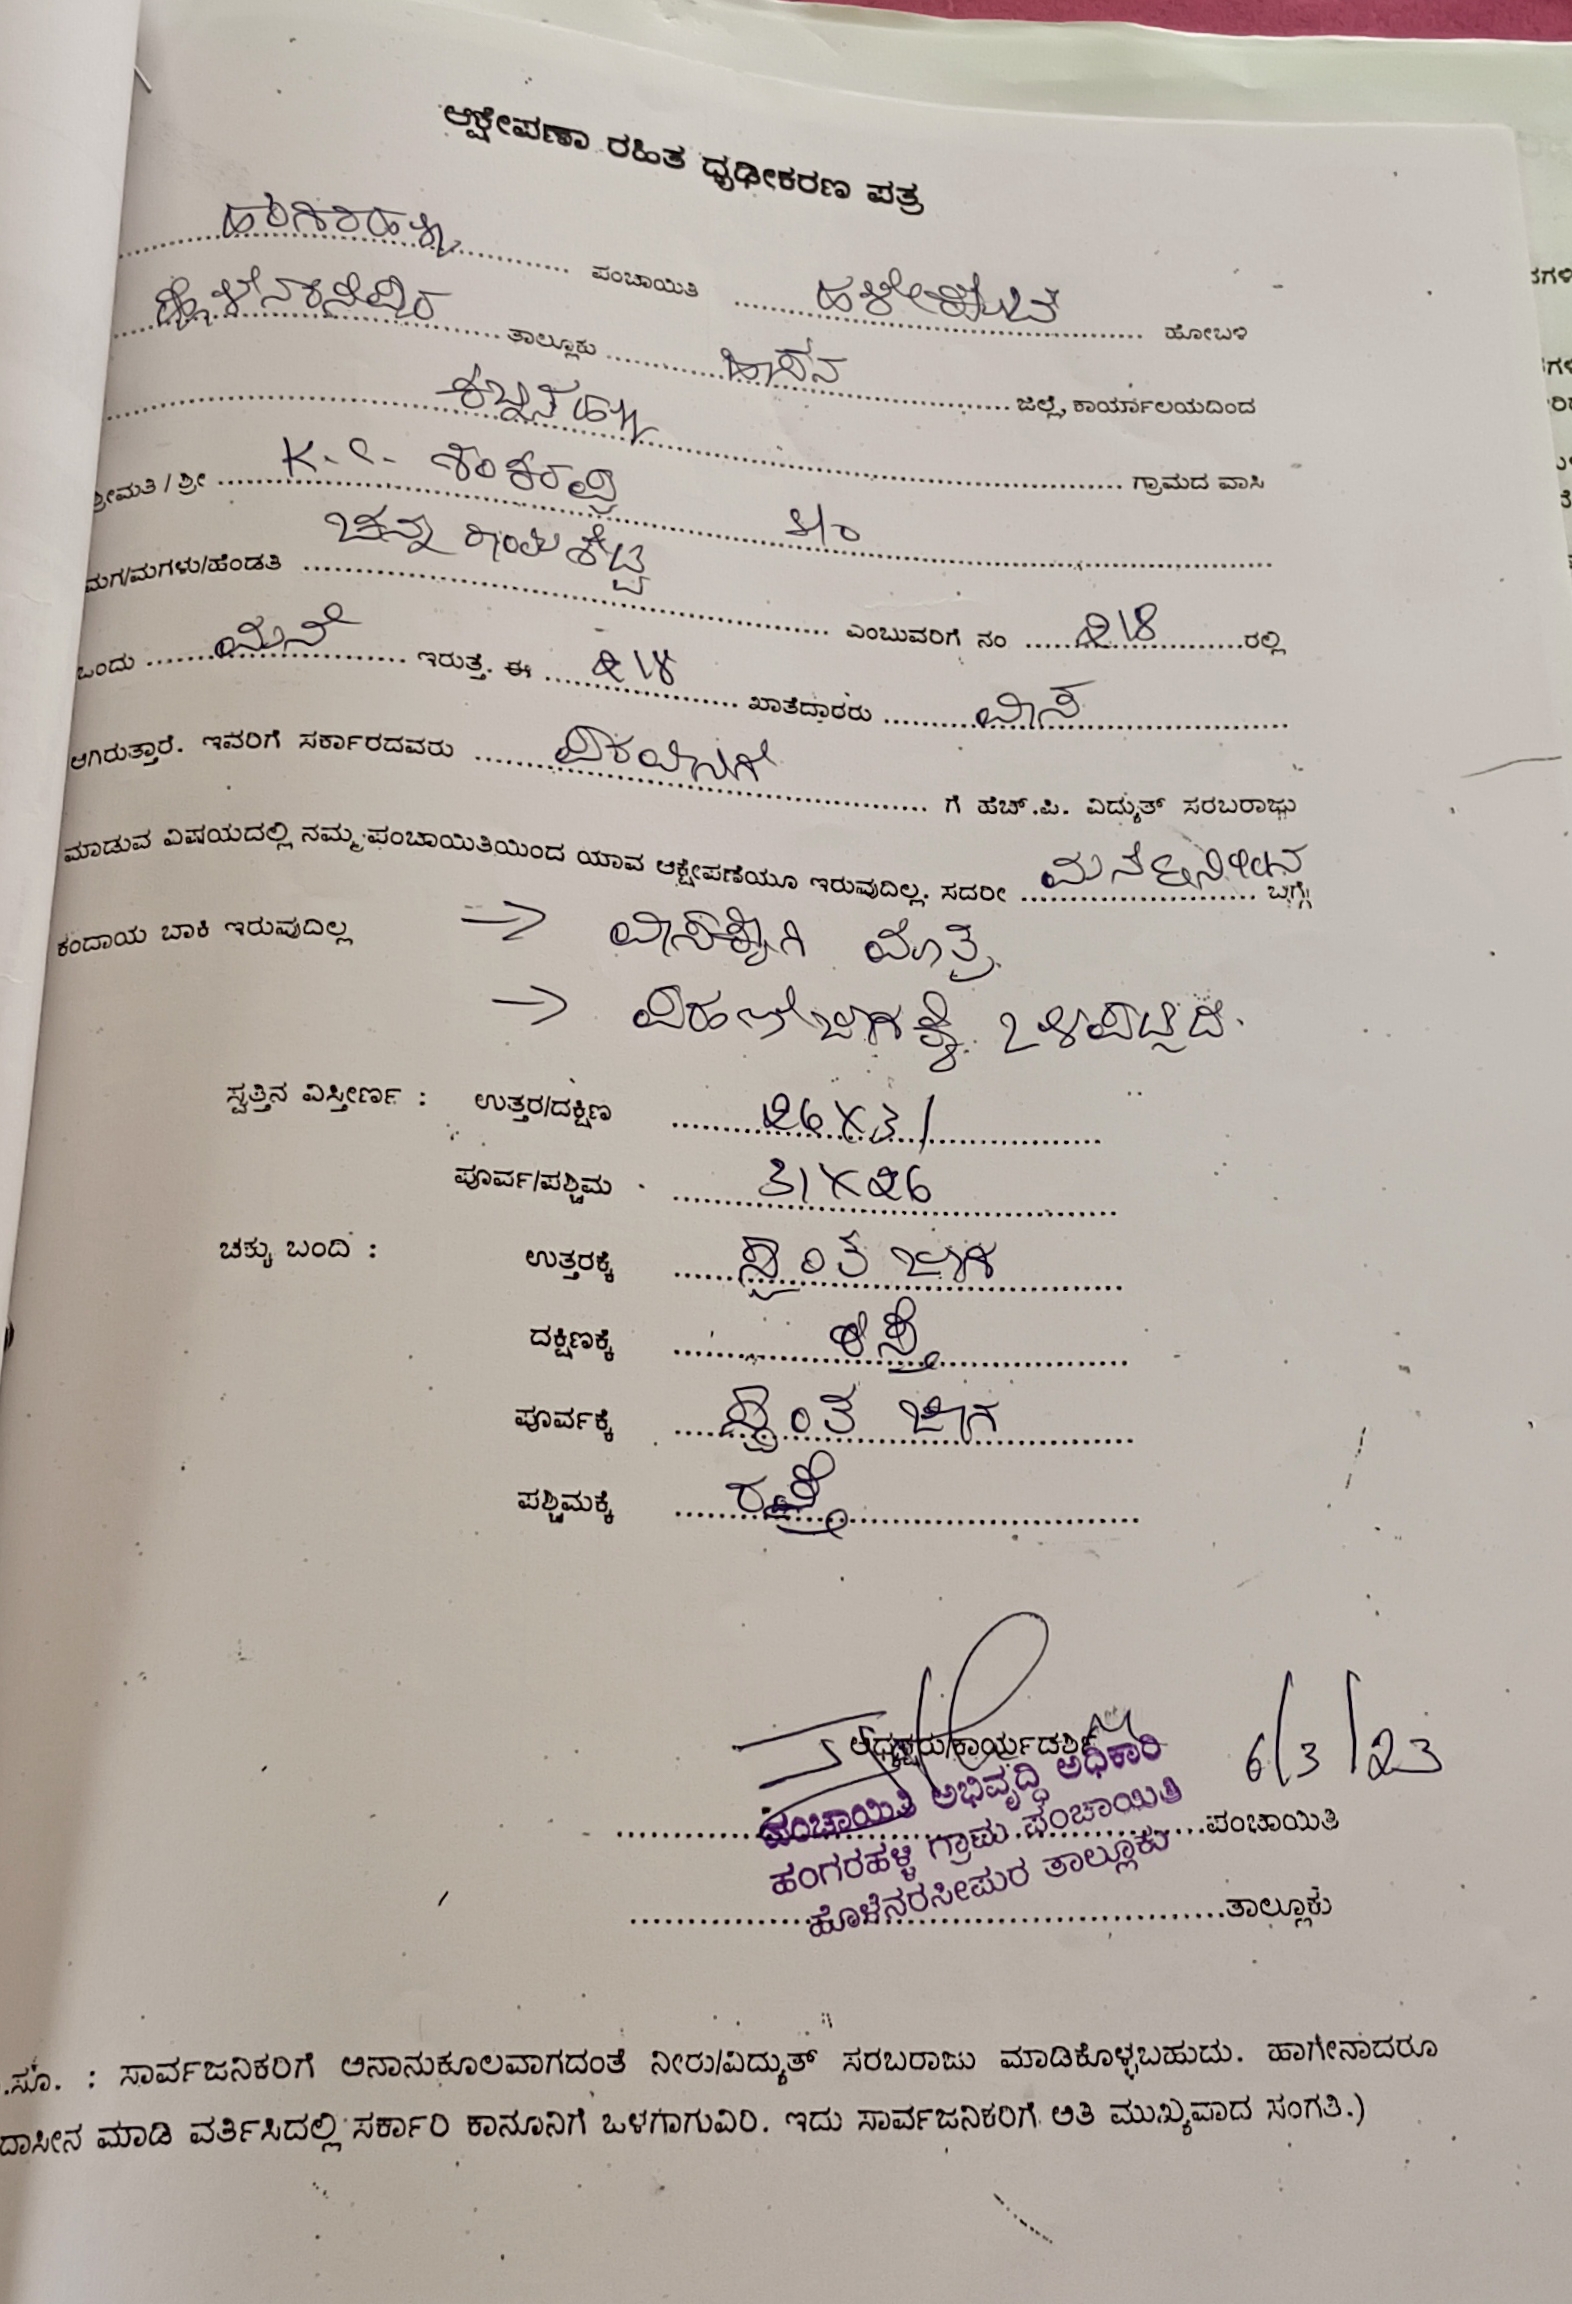 ಆಕ್ಷೇಪಣಾ ರಹಿತ ಧೃಢೀಕರಣ ಪತ್ರ
ಹಂಗರಹಳ್ಳಿ ಪಂಚಾಯಿತಿ ಹಳೇಕೋಟೆ ಹೋಬಳಿ
ಹೊಳೆನರಸೀಪುರ ತಾಲ್ಲೂಕು ಹಾಸನ ಜಿಲ್ಲೆ, ಕಾರ್ಯಾಲಯದಿಂದ
ಗ್ರಾಮದ ವಾಸಿ
ಶ್ರೀಮತಿ / ಶ್ರೀ K. C. ಶಂಕರಪ್ಪ S/o
ಮಗ/ಮಗಳು/ಹೆಂಡತಿ ಎಂಬುವರಿಗೆ ನಂ 218 ರಲ್ಲಿ
ಒಂದು ಮನೆ ಇರುತ್ತೆ. ಈ 218 ಖಾತೆದಾರರು ವಾಸ
ಆಗಿರುತ್ತಾರೆ. ಇವರಿಗೆ ಸರ್ಕಾರದವರು ಗೆ ಹೆಚ್.ಪಿ. ವಿದ್ಯುತ್ ಸರಬರಾಜು
ಮಾಡುವ ವಿಷಯದಲ್ಲಿ ನಮ್ಮ ಪಂಚಾಯಿತಿಯಿಂದ ಯಾವ ಆಕ್ಷೇಪಣೆಯೂ ಇರುವುದಿಲ್ಲ. ಸದರೀ ಬಗ್ಗೆ
ಕಂದಾಯ ಬಾಕಿ ಇರುವುದಿಲ್ಲ → ವಾಸಕ್ಕಾಗಿ ಮಾತ್ರ
→ ಒಳಪಟ್ಟಿದೆ.
ಸ್ವತ್ತಿನ ವಿಸ್ತೀರ್ಣ : ಉತ್ತರ/ದಕ್ಷಿಣ 26 X 31
ಪೂರ್ವ/ಪಶ್ಚಿಮ 31 X 26
ಚಕ್ಕು ಬಂದಿ : ಉತ್ತರಕ್ಕೆ ಸ್ವಂತ ಜಾಗ
ದಕ್ಷಿಣಕ್ಕೆ ರಸ್ತೆ
ಪೂರ್ವಕ್ಕೆ ಸ್ವಂತ ಜಾಗ
ಪಶ್ಚಿಮಕ್ಕೆ ರಸ್ತೆ
ಅಧ್ಯಕ್ಷರು/ಕಾರ್ಯದರ್ಶಿ 6/3/23
ಪಂಚಾಯಿತಿ ಅಭಿವೃದ್ಧಿ ಅಧಿಕಾರಿ
ಹಂಗರಹಳ್ಳಿ ಗ್ರಾಮ ಪಂಚಾಯಿತಿ ಪಂಚಾಯಿತಿ
ಹೊಳೆನರಸೀಪುರ ತಾಲ್ಲೂಕು ತಾಲ್ಲೂಕು
.ಸೂ. : ಸಾರ್ವಜನಿಕರಿಗೆ ಅನಾನುಕೂಲವಾಗದಂತೆ ನೀರು/ವಿದ್ಯುತ್ ಸರಬರಾಜು ಮಾಡಿಕೊಳ್ಳಬಹುದು. ಹಾಗೇನಾದರೂ
ದಾಸೀನ ಮಾಡಿ ವರ್ತಿಸಿದಲ್ಲಿ ಸರ್ಕಾರಿ ಕಾನೂನಿಗೆ ಒಳಗಾಗುವಿರಿ. ಇದು ಸಾರ್ವಜನಿಕರಿಗೆ ಅತಿ ಮುಖ್ಯವಾದ ಸಂಗತಿ.)